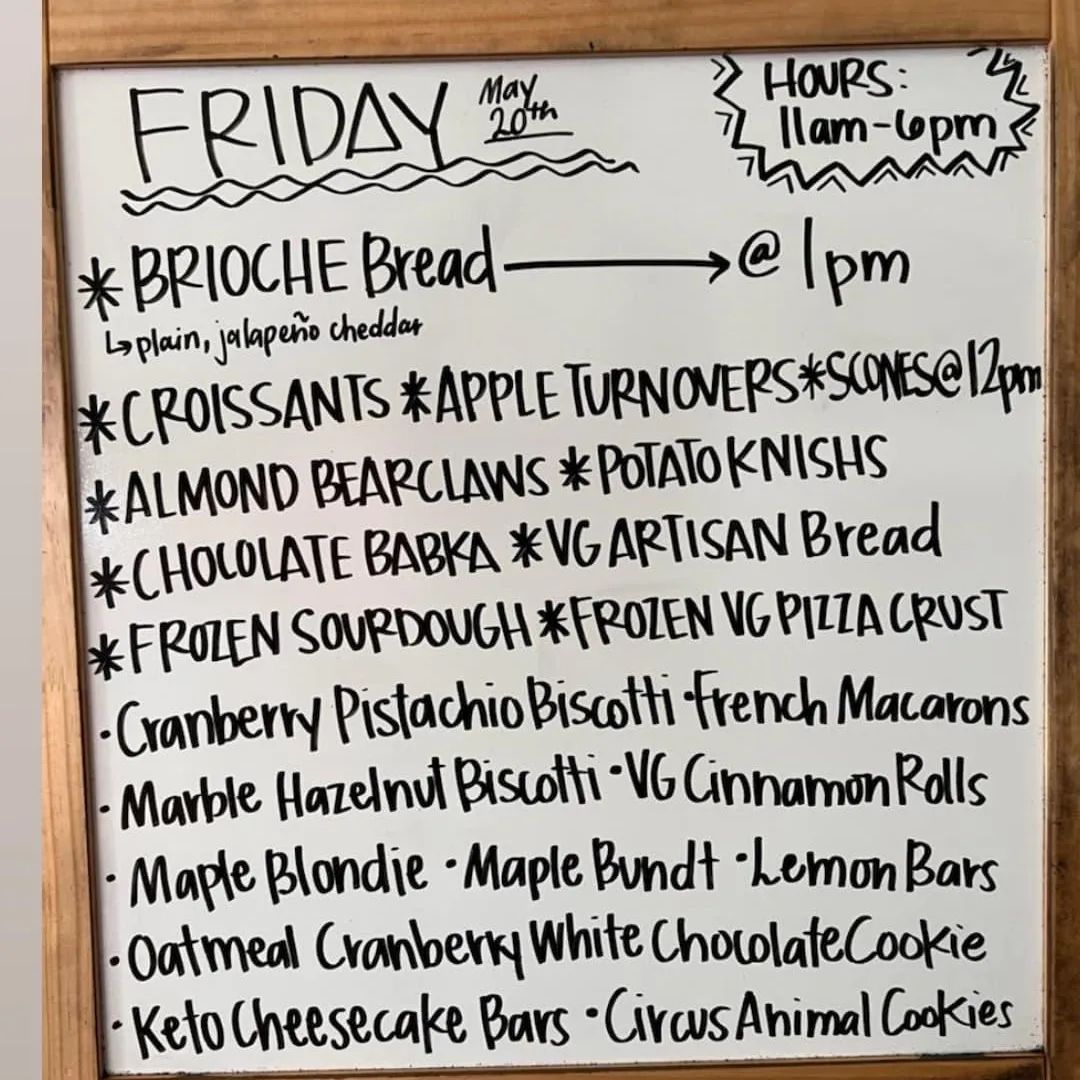 FRIDAY May 20th
HOURS:
11am-6pm
* BRIOCHE Bread → @ 1pm
↳ plain, jalapeño cheddar
*CROISSANTS *APPLE TURNOVERS *SCONES @ 12pm
*ALMOND BEARCLAWS *POTATO KNISHS
*CHOCOLATE BABKA *VG ARTISAN Bread
*FROZEN SOURDOUGH *FROZEN VG PIZZA CRUST
·Cranberry Pistachio Biscotti ·French Macarons
·Marble Hazelnut Biscotti ·VG Cinnamon Rolls
·Maple Blondie ·Maple Bundt ·Lemon Bars
·Oatmeal Cranberry White Chocolate Cookie
·Keto Cheesecake Bars ·Circus Animal Cookies